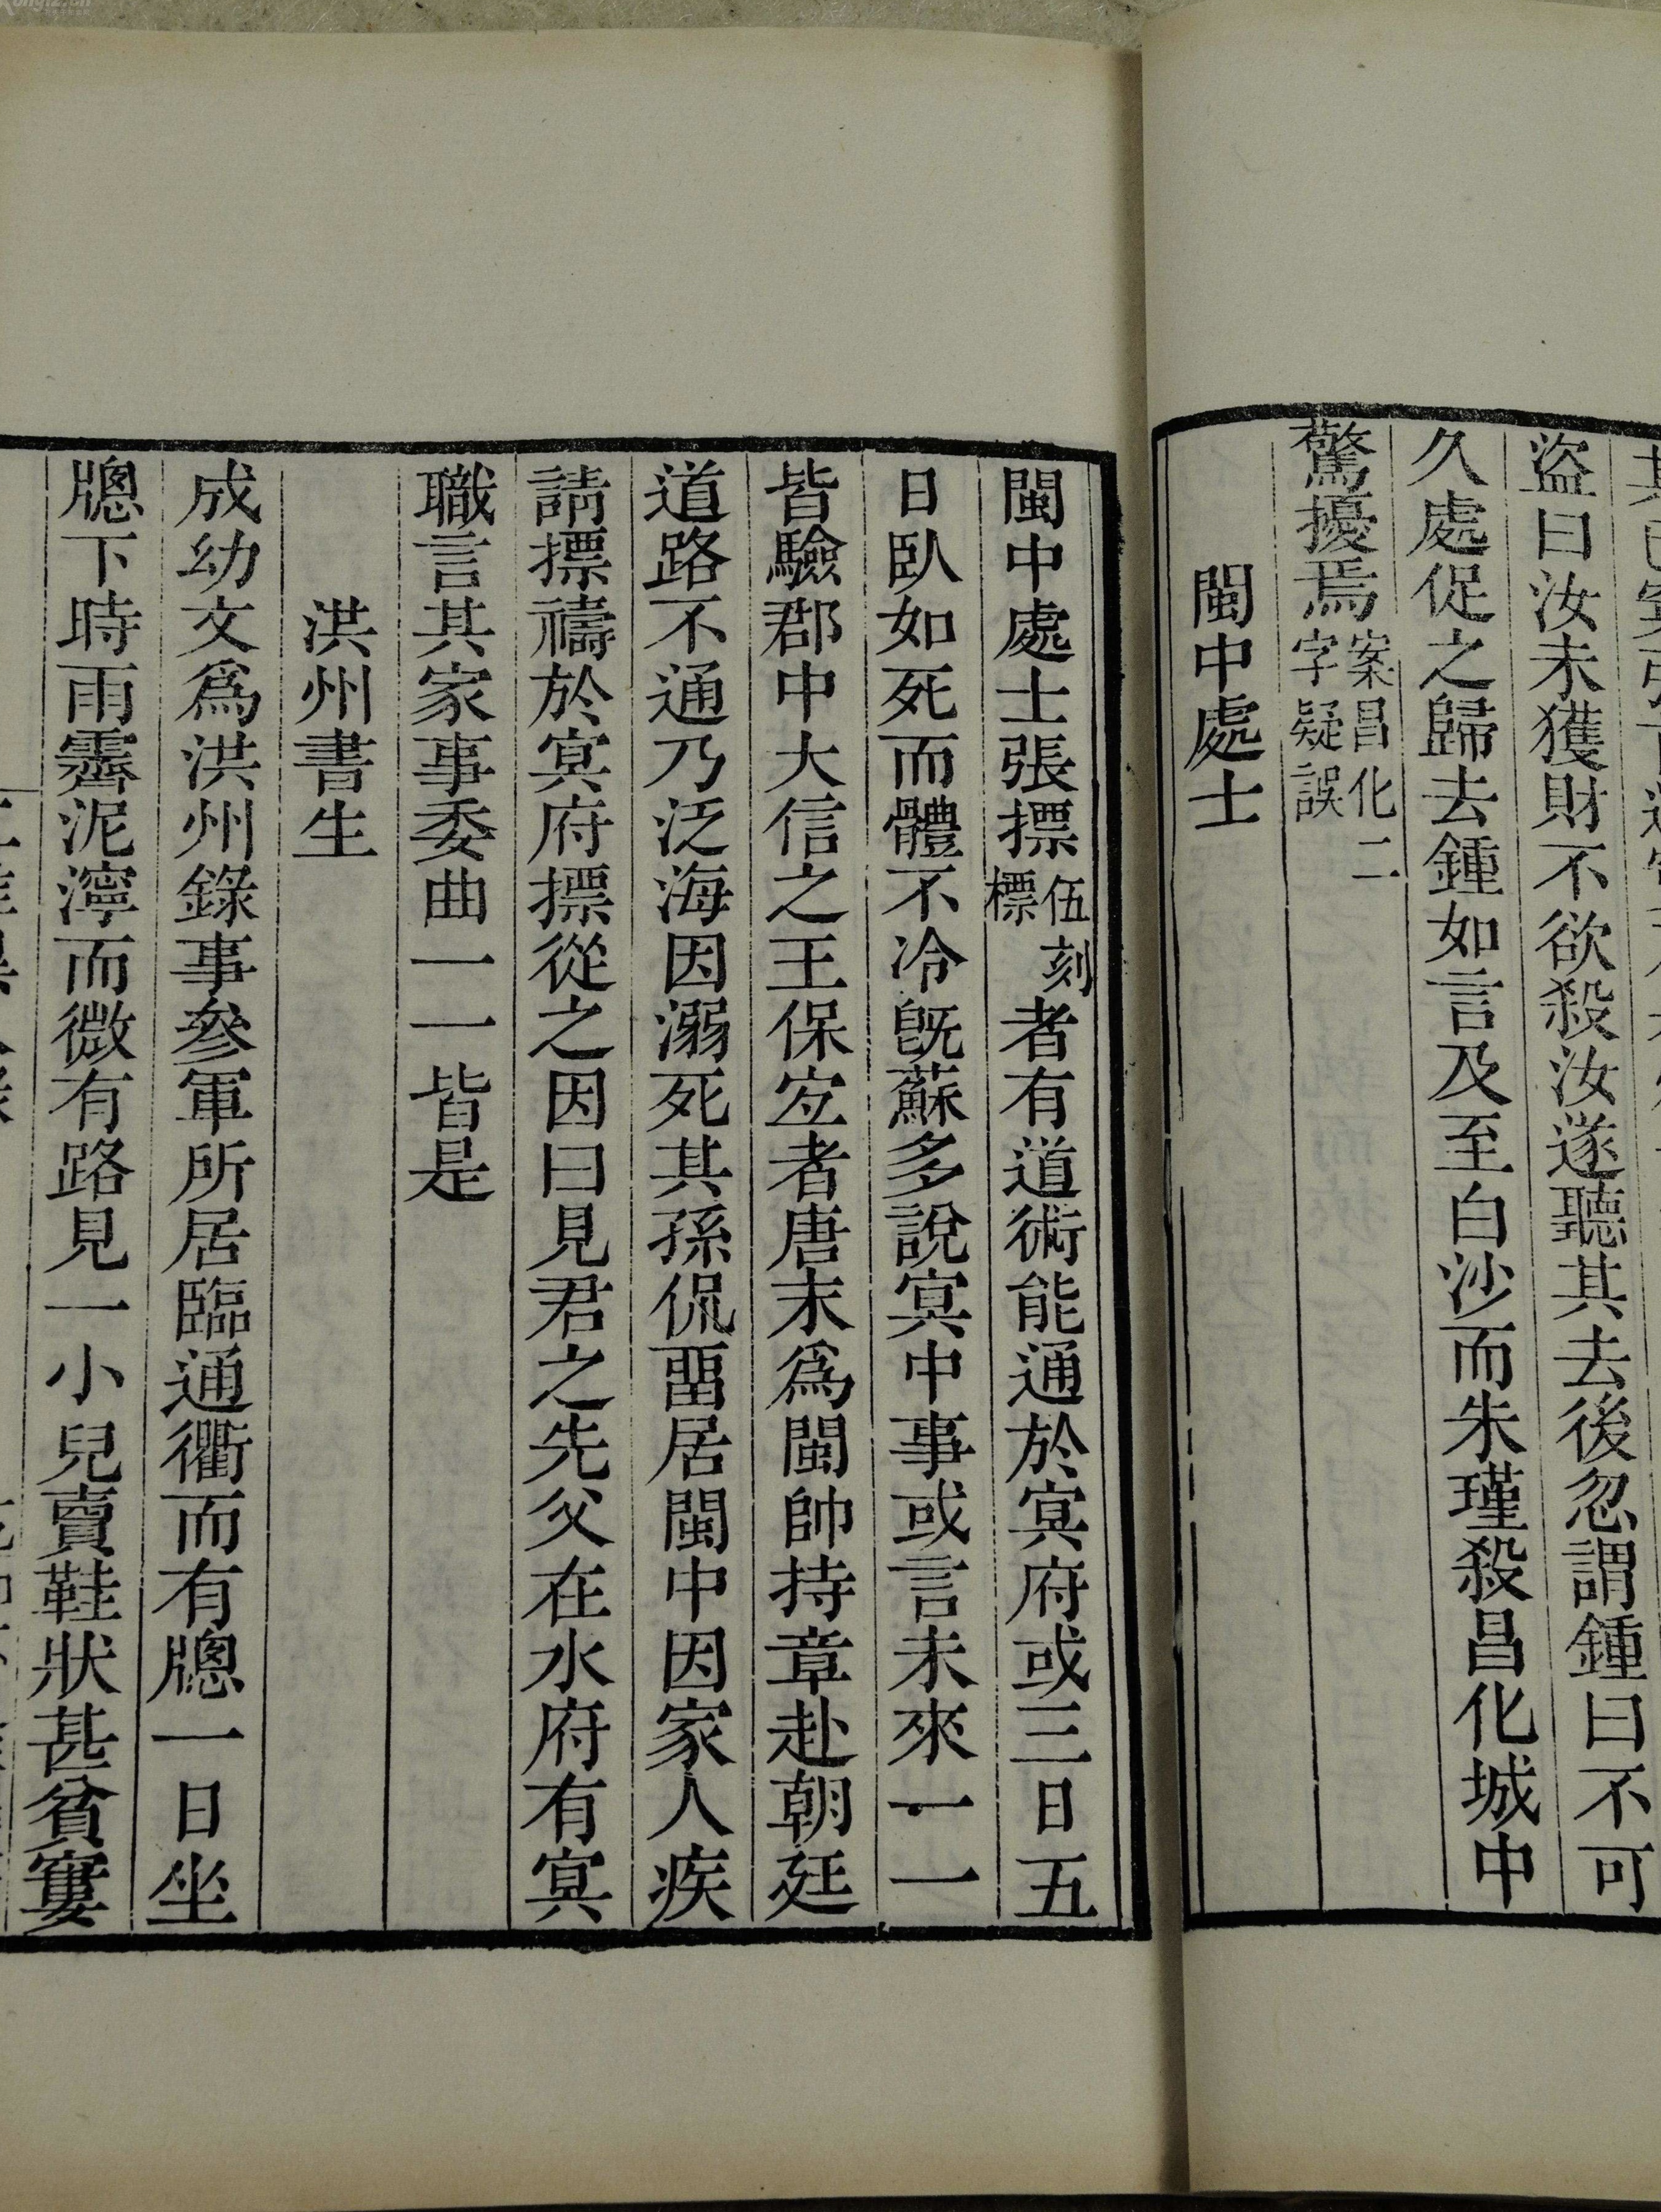 盜曰汝未獲財不欲殺汝遂聽其去後忽謂鍾曰不可
久處促之歸去鍾如言及至白沙而朱瑾殺昌化城中
驚擾焉案昌化二字疑誤
閩中處士
閩中處士張摽伍刻標者有道術能通於冥府或三日五
日臥如死而體不冷旣蘇多說冥中事或言未來一一
皆驗郡中大信之王保宐者唐末爲閩帥持章赴朝廷
道路不通乃泛海因溺死其孫侃畱居閩中因家人疾
請摽禱於冥府摽從之因曰見君之先父在水府有冥
職言其家事委曲一一皆是
洪州書生
成幼文爲洪州錄事參軍所居臨通衢而有牕一日坐
牕下時雨霽泥濘而微有路見一小兒賣鞋狀甚貧窶